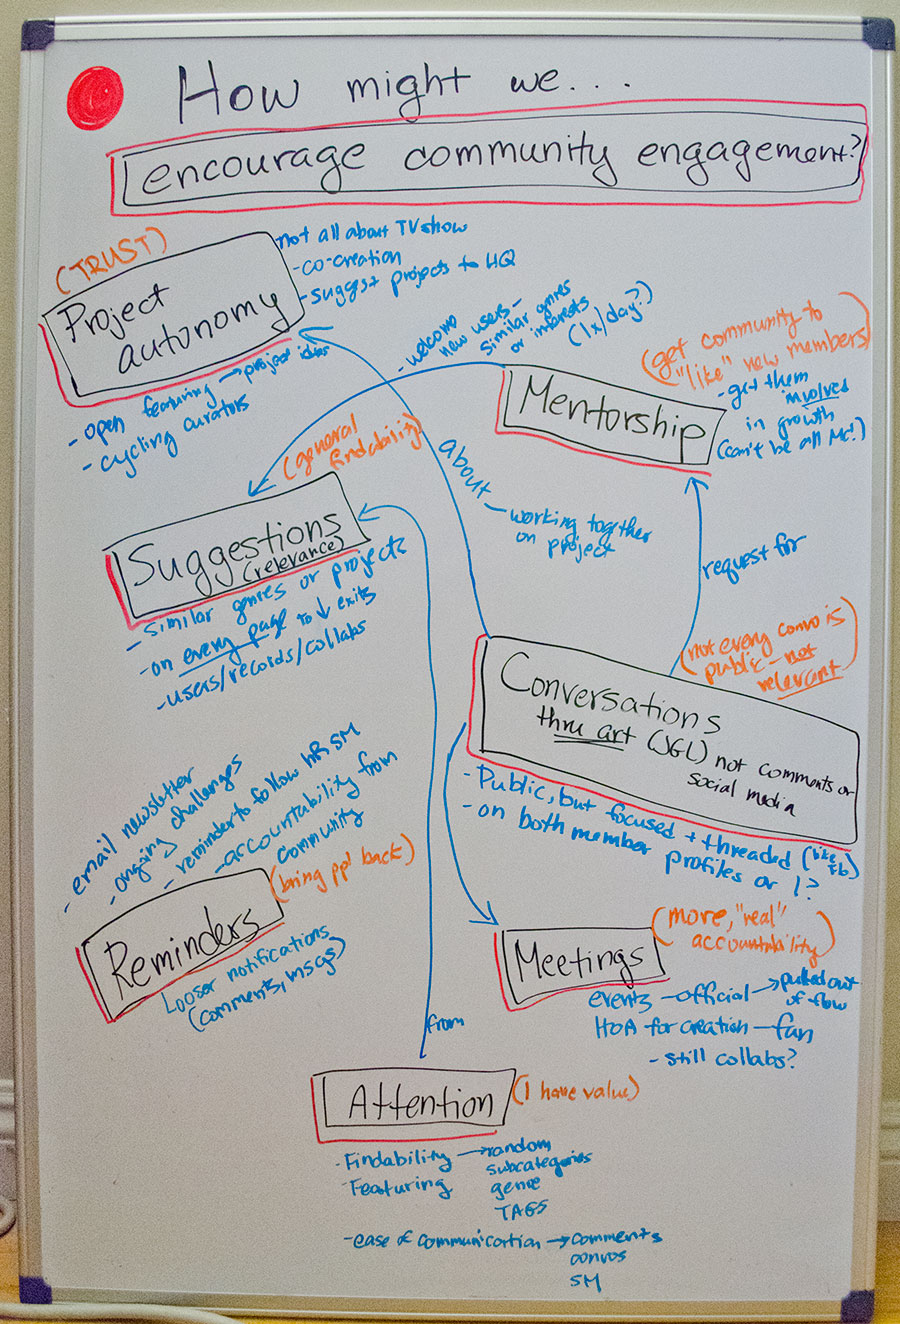 How might we...
encourage community engagement?
(TRUST)
Project
autonomy
not all about TV show
- co-creation
- suggest projects to HQ
- open featuring → project ideas
- cycling curators
- welcome
new users -
similar genres
or interests
(1x/day?)
Mentorship
(get community to
"like" new members)
- get them
involved
in growth
(can't be all Me!)
(general
findability)
Suggestions
(relevance)
- similar genres or projects
- on every page to ↓ exits
- users/records/collabs
about
- working together
on project
request for
(not every convo is
public - not
relevant)
Conversations
thru art (JGL) not comments or
social media
- Public, but focused + threaded (like fb)
- on both member
profiles or 1?
- email newsletter
- ongoing challenges
- reminder to follow HR SM
- accountability from
community
(bring ppl back)
Reminders
Looser notifications
(comments, msgs)
(more, "real"
accountability)
Meetings
events - official → pulled out
of flow
HOA for creation - fan
- still collabs?
from
Attention
(I have value)
- Findability → random
subcategories
- Featuring
genre
TAGS
- ease of communication → comments
convos
SM